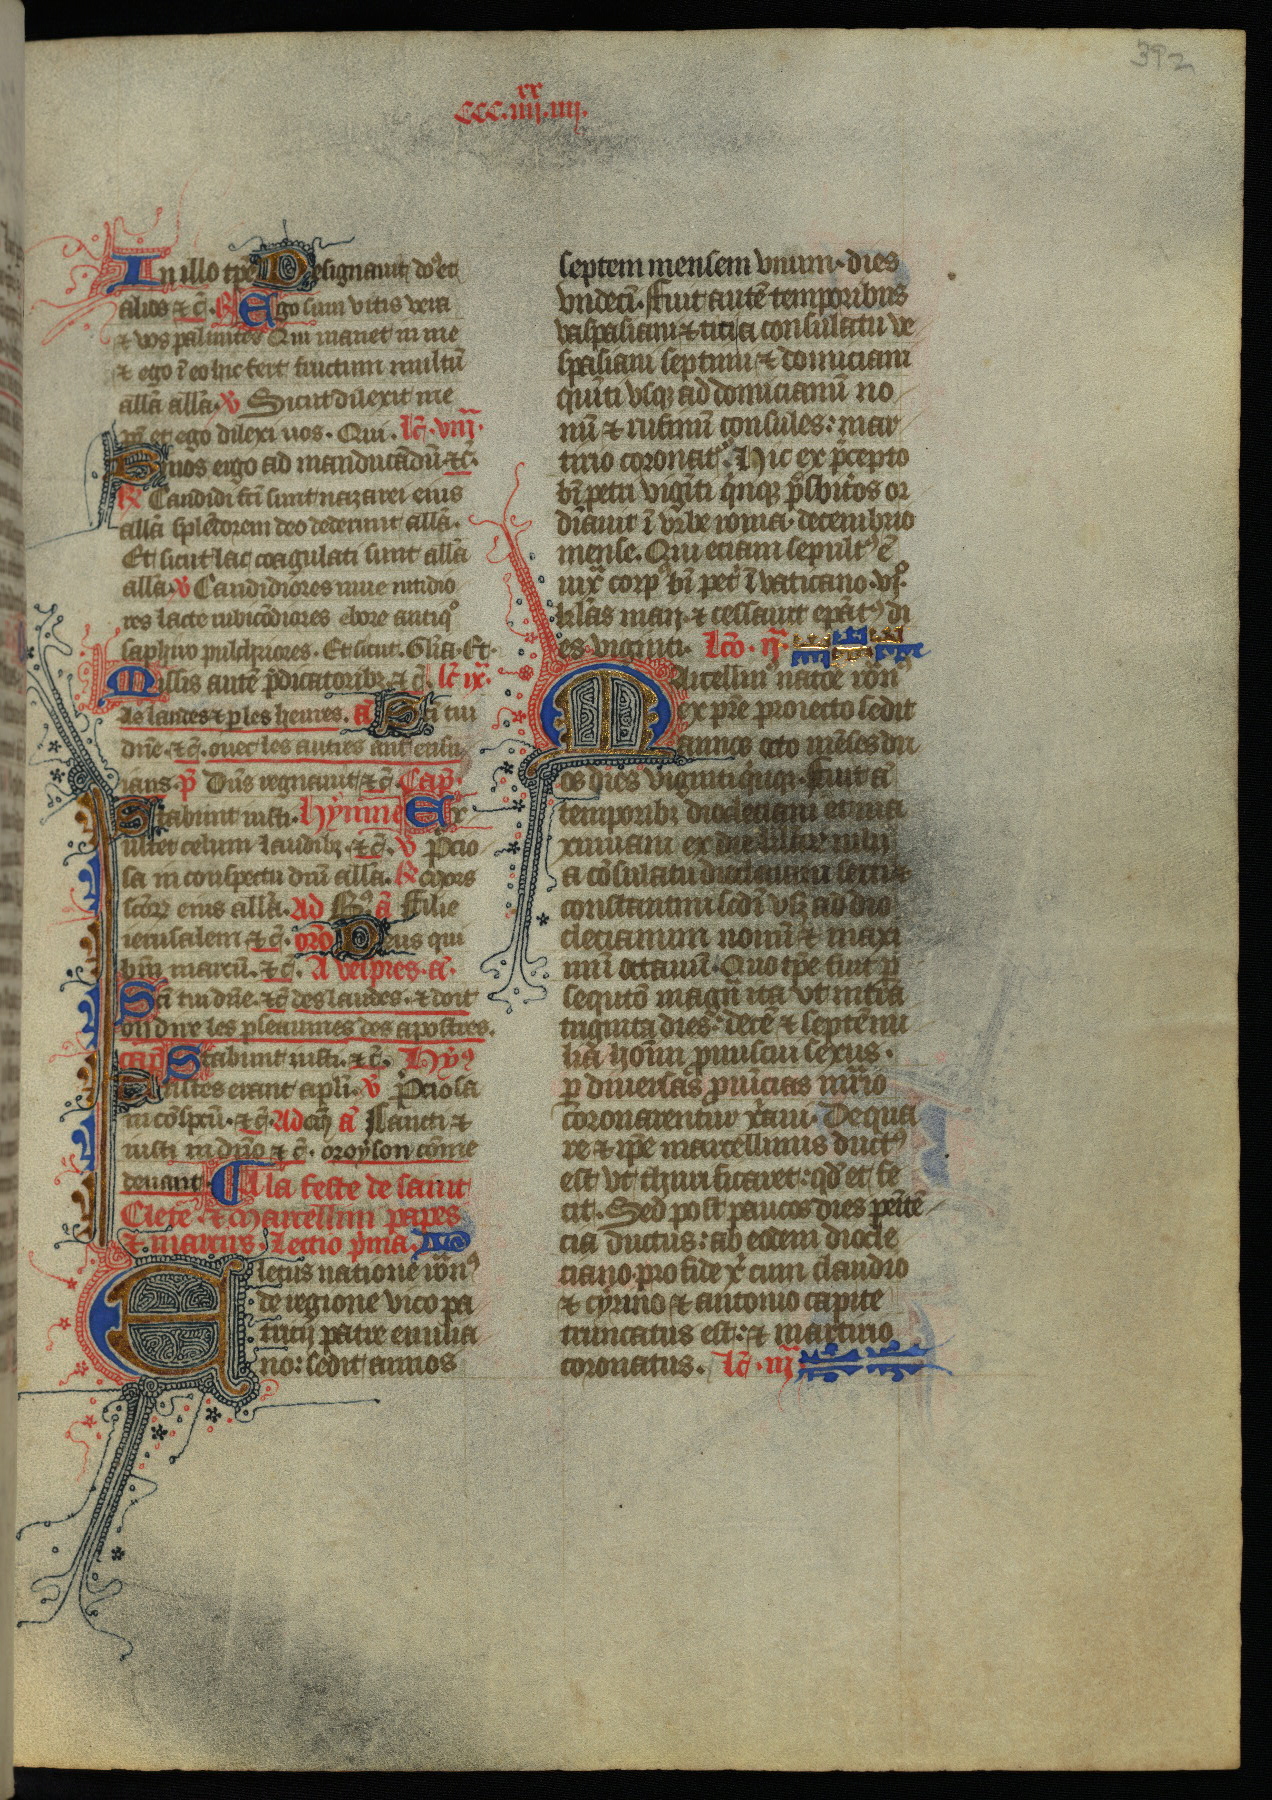 392
xx
CCC.iiij.iiij.
In illo tpr̄e Designauit dn̄s et
alios &c̄. R̷ Ego sum vitis vera
& vos palmites Qui manet in me
& ego ī eo hic fert fructum multū
allā allā. v̷ Sicut dilexit me
pr̄ et ego dilexi uos. Qui. lc̄. viij.
uos ergo ad manducādū. &c̄.
R̷ Candidi fc̄i sunt nazarei eius
allā splēdorem deo dederunt allā.
Et sicut lac coagulati sunt allā
allā. v̷ Candidiōres niue nitidio
res lacte rubicōdiores ebore antiqͦ
saphiro pulchriores. Et sicut. Glīa. Et.
Missis autē p̄dicatorib; &c̄. lc̄ ix.
As laudes & p les heures. ā Sc̄i tui
dn̄e. &c̄. ouec les autres ant̄ ensiu
ians. p̄ Dn̄s regnauit &c̄. Cap̄.
Stabunt iusti. Hympne Ex
ultet celum laudib; &c̄. v̷ p̄cio
sa in conspectu dn̄i allā. R̷ Mors
sc̄orꝝ eius allā. Ad Bn̄s ā Filie
ierusalem &c̄. orō Deus qui
bn̄m marcū. &c̄. A vespres. ā.
Sc̄i tui dn̄e. &c̄ des laudes. & doit
on dire les pseaumes des apostres.
cap̄ Stabunt iusti. &c̄. Hȳꝯ
Tristes erant apl̄i. v̷ p̄ciosa
in cōspc̄u. &c̄. Ad Mḡ ā Sancti &
iusti in dn̄o &c̄. oroyson cōme
deuant. A la feste de saint
Clete & Marcellin papes
& martirs. Lectio p̄ma.
letus natione rōnꝯ
de regione vico pa
tricij patre emilia
no: sedit annos
septem mensem vnum. dies
vndecī. Fuit autē temporibus
vaspasiani & titi a consulatu ve
spasiani septimi & domiciani
quīti vsqꝫ ad domicianū no
nū & rufinū consules: mar
tirio coronatꝰ. Hic ex p̄cepto
bī petri viginti qīnqꝫ p̄sbitōs or
dīauit ī vrbe roma. decembrio
mense. Qui etiam sepultꝰ ē
iux̄ corpꝰ bī petī ī vaticano. vjͦ.
kl̄as maij. & cessauit ep̄atꝰ di
es viginti. Lc̄o. ij.
Marcellinꝰ natōe rōnꝰ
ex pr̄e proiecto sedit
annos octo mēses du
os dies viginti qīnqꝫ. Fuit ā
temporib; diocleciani et ma
ximiani ex die
a cōsulatu diocleciani sexti &
constantini sc̄di vsqꝫ ad dio
clecianum nonū & maxi
mū octauū. Quo tpr̄e fuit p̄
sequtō magna ita vt intra
triginta dies: decē & septē mi
lia hoīm promiscui sexus.
p diuersas prouīcias mr̄io
coronarentur xp̄iani. De qua
re & ip̄e marcellinus ductꝰ
est vt thurificaret: qd̄ et fe
cit. Sed post paucos dies penitē
cia ductus: ab eodem diocle
ciano pro fide xp̄i cum claudio
& cyrino & antonio capite
truncatus est: & martirio
coronatus. lc̄. iij.